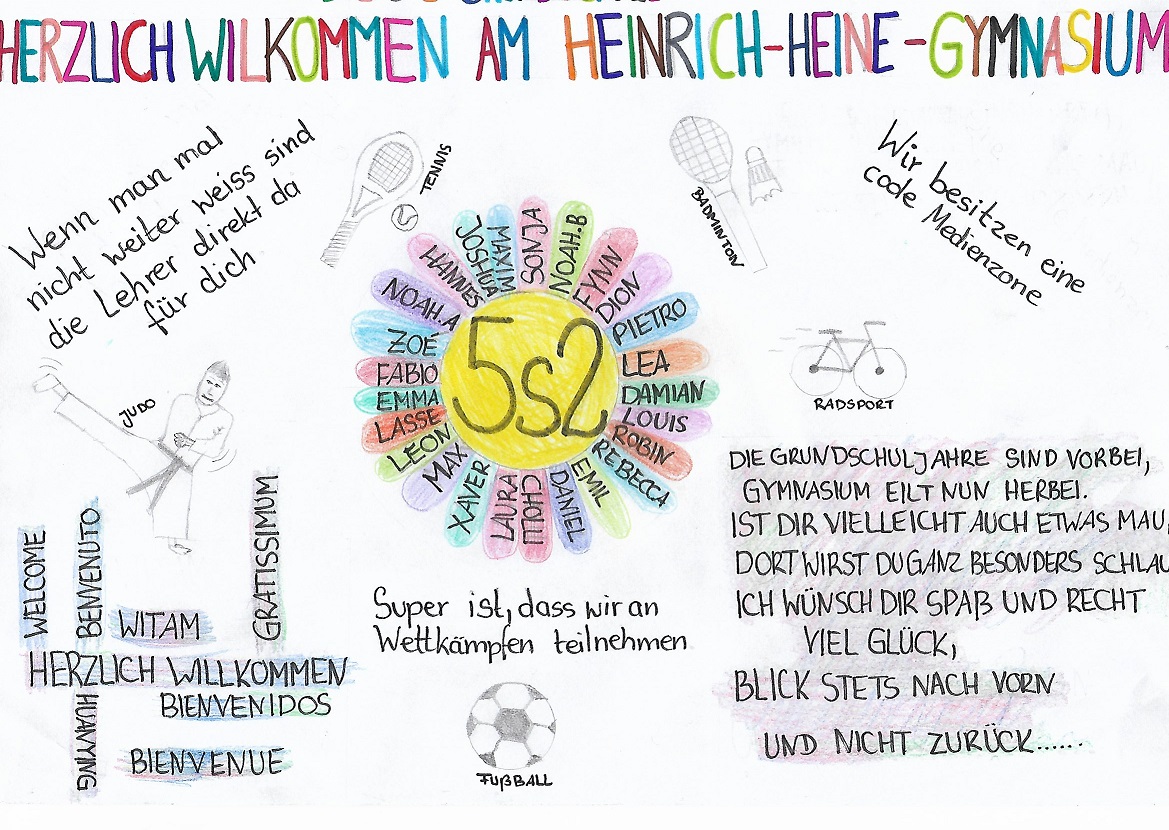 HERZLICH WILKOMMEN AM HEINRICH-HEINE-GYMNASIUM
Wenn man mal
nicht weiter weiss sind
die Lehrer direkt da
für dich
TENNIS
BADMINTON
Wir besitzen eine
coole Medienzone
JUDO
RADSPORT
5s2
SONJA
NOAH.B
FYNN
DION
PIETRO
LEA
DAMIAN
LOUIS
ROBIN
REBECCA
EMIL
DANIEL
LAURA
XAVER
MAX
LEON
LASSE
EMMA
FABIO
ZOÉ
NOAH.A
HANNES
JOSHUA
MAXIM
WELCOME
BENVENUTO
WITAM
GRATISSIMUM
HERZLICH WILLKOMMEN
BIENVENIDOS
HUANYING
BIENVENUE
Super ist, dass wir an
Wettkämpfen teilnehmen
FUßBALL
DIE GRUNDSCHULJAHRE SIND VORBEI,
GYMNASIUM EILT NUN HERBEI.
IST DIR VIELLEICHT AUCH ETWAS MAU,
DORT WIRST DU GANZ BESONDERS SCHLAU
ICH WÜNSCH DIR SPAß UND RECHT
VIEL GLÜCK,
BLICK STETS NACH VORN
UND NICHT ZURÜCK......